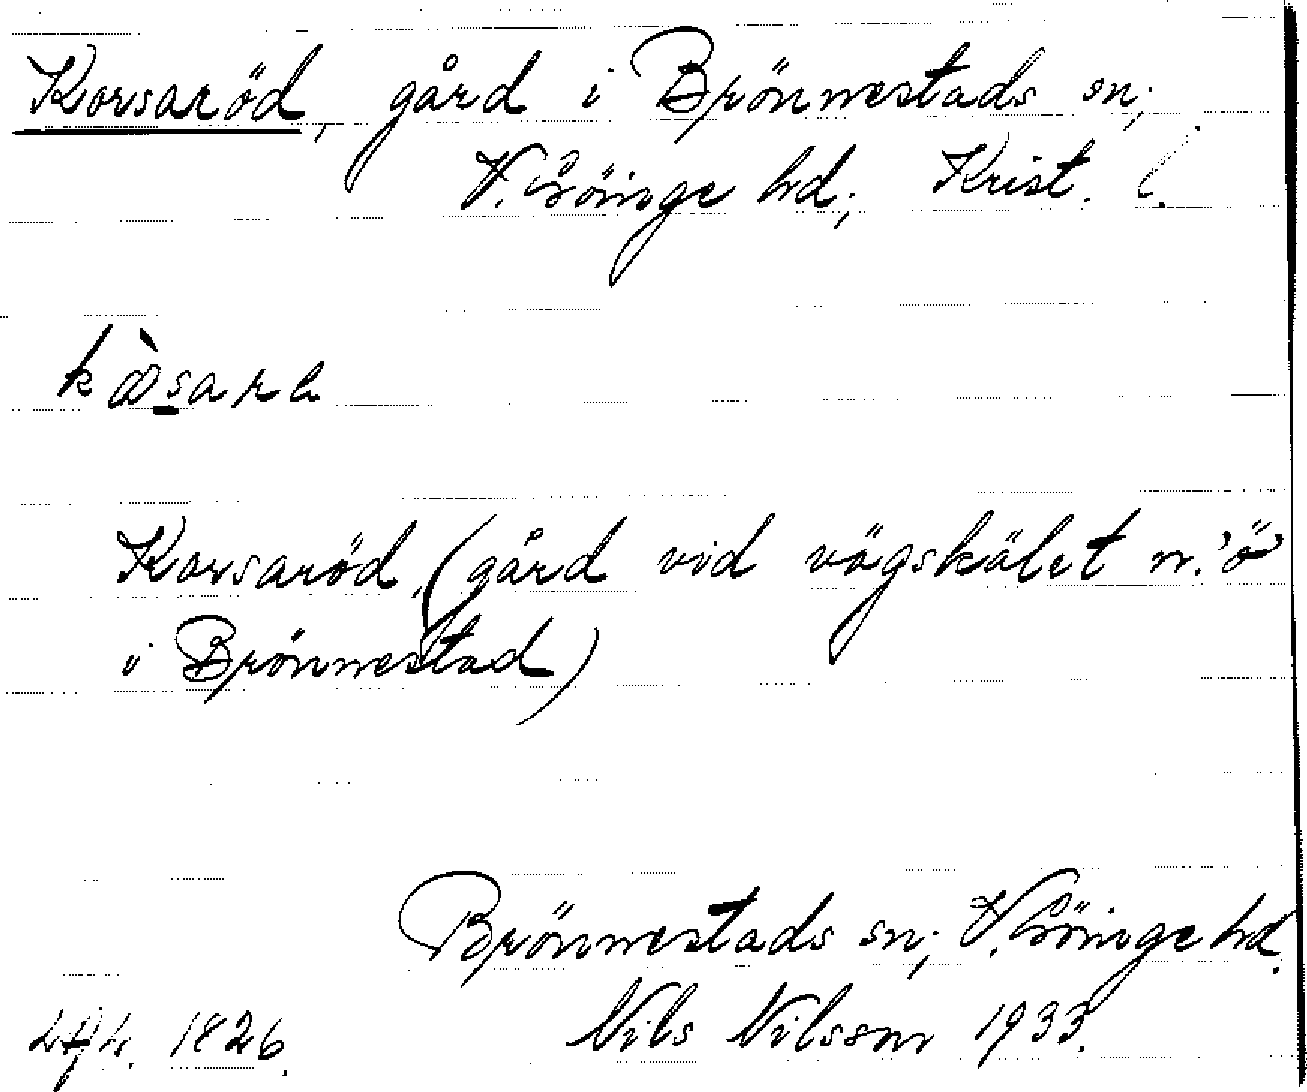 Korsaröd, gård i Brönnestads sn;
V. Göinge hd; Krist. l.
kòsarə
Korsaröd, (gård vid vägskälet n.'ö'
i Brönnestad)
Brönnestads sn; V. Göinge hd.
Nils Nilsson 1933.
1826.